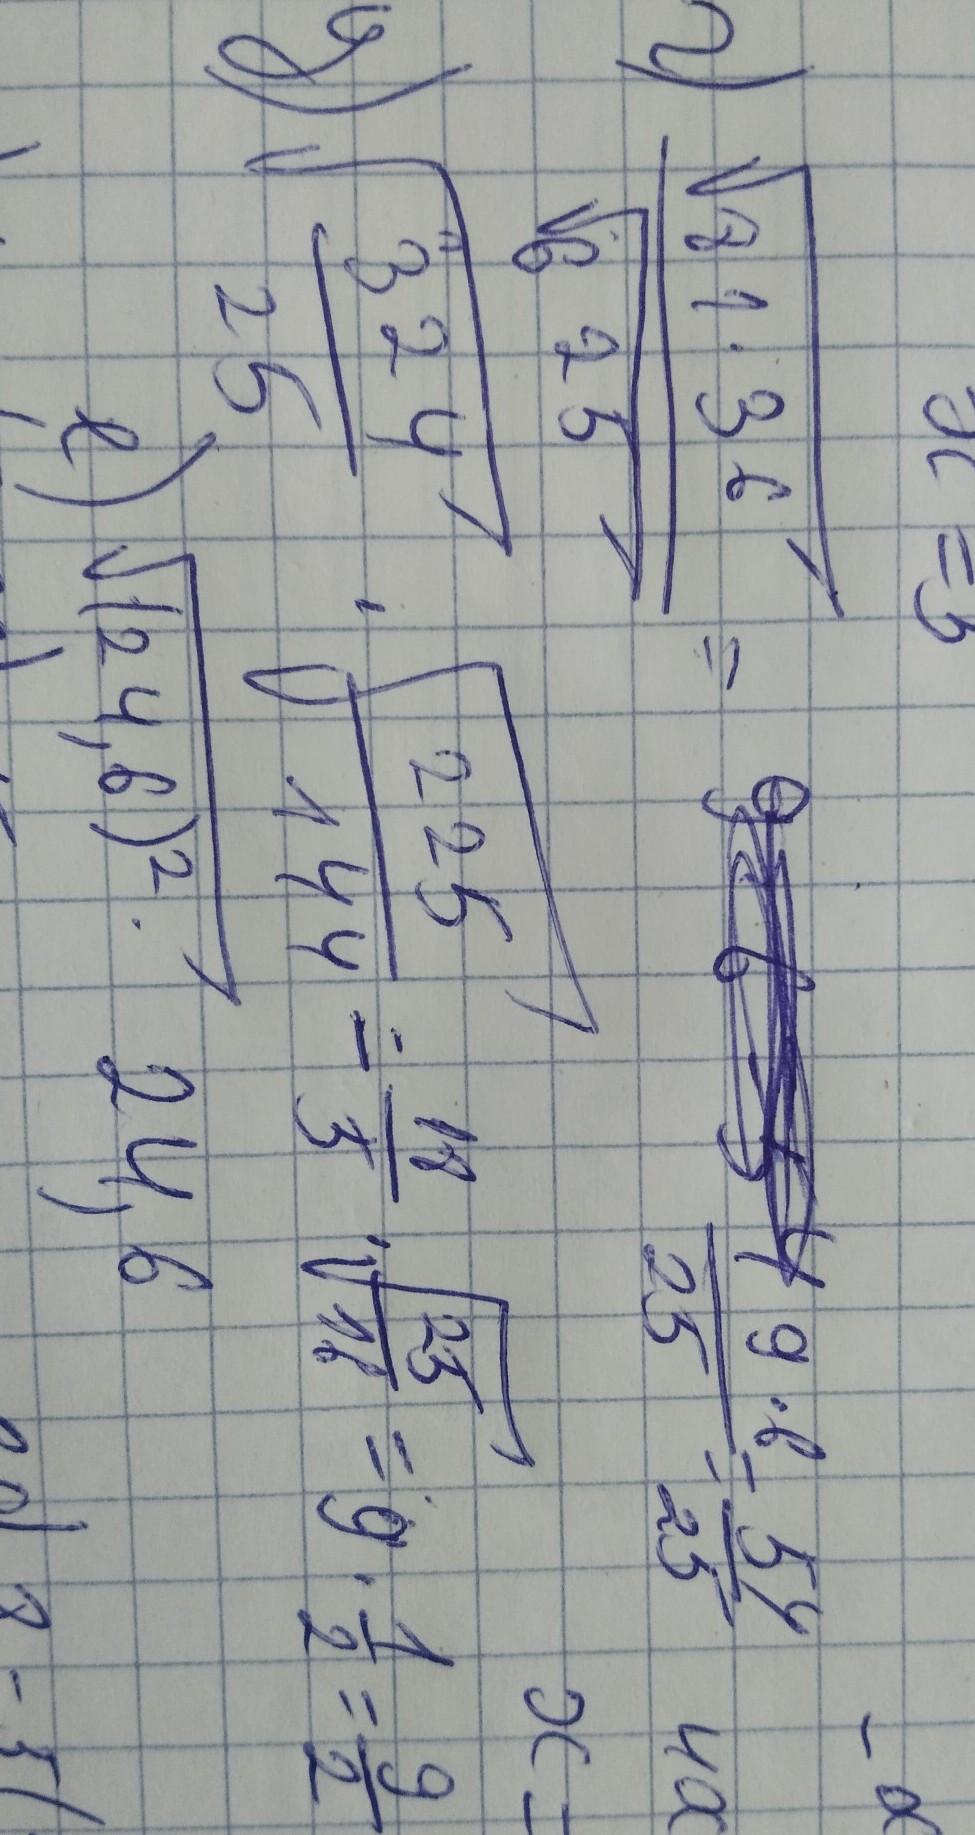 x = 3
г) √81·36 / √625 = 9·6/25 = 54/25
д) √(324/25) · √(225/144) = 18/5 · √(25/16) = 9 · 1/2 = 9/2
x =
е) √(24,6)². 24,6